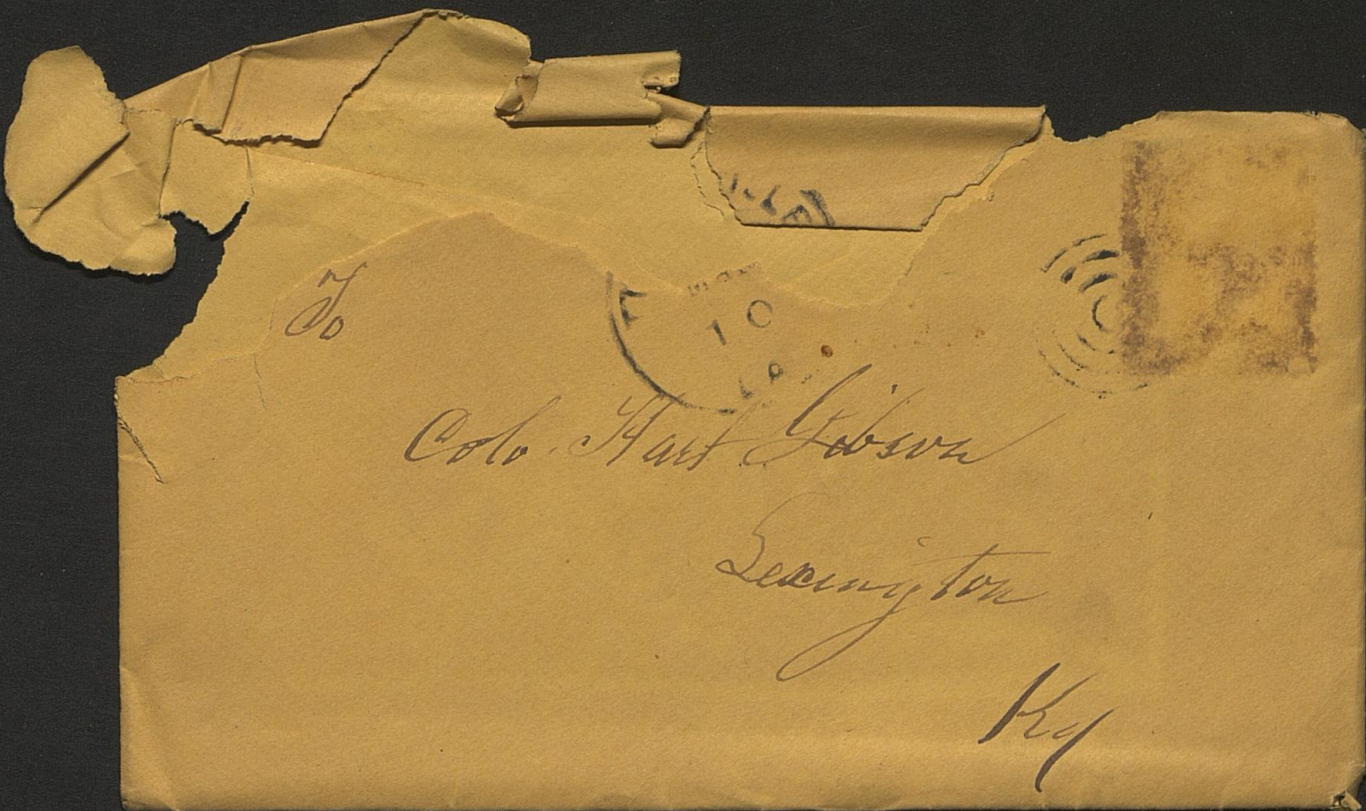 To
10
Colo. Hart Gibson
Lexington
Ky